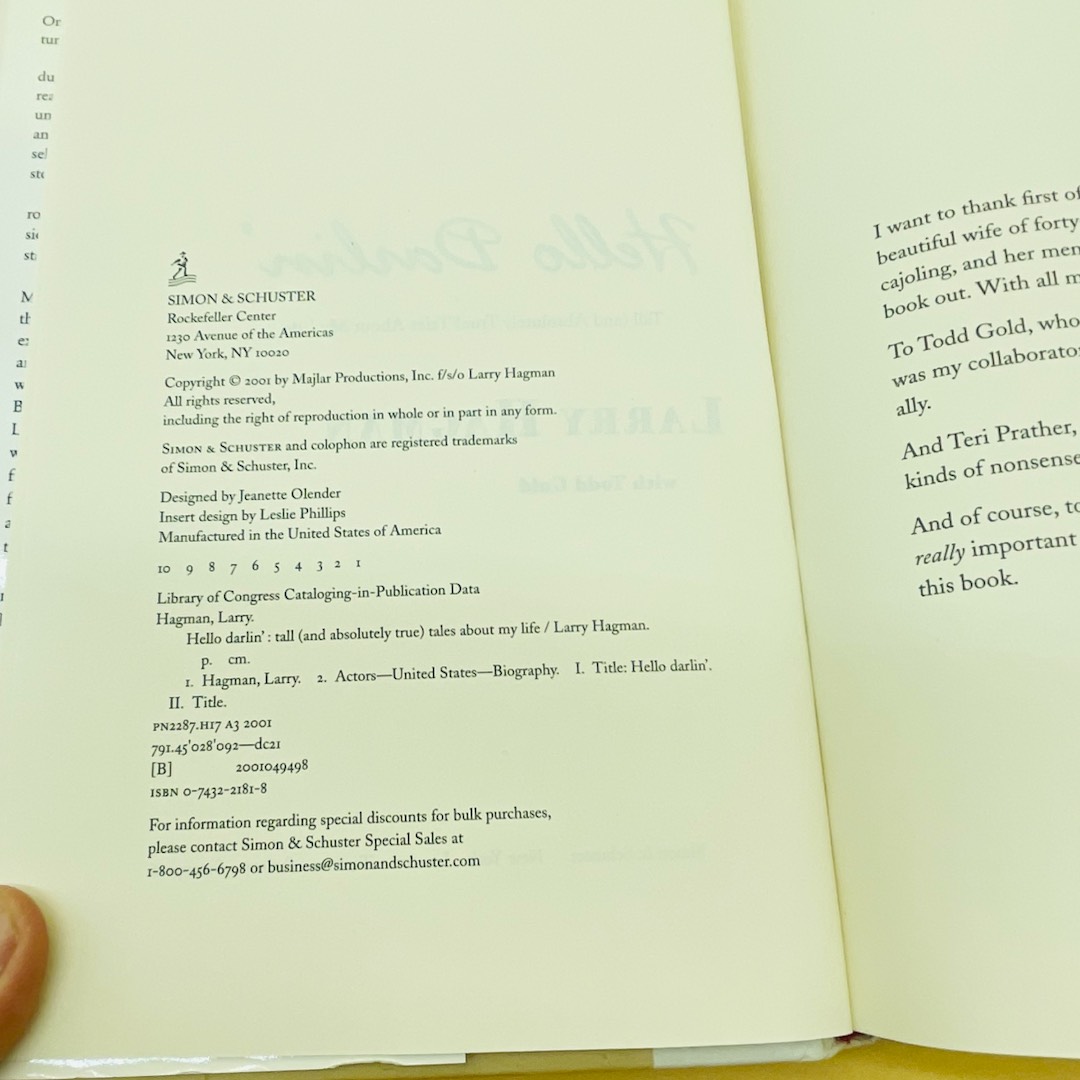 Or
tur
du
un
an
ro
SIMON & SCHUSTER
Rockefeller Center
1230 Avenue of the Americas
New York, NY 10020
Copyright © 2001 by Majlar Productions, Inc. f/s/o Larry Hagman
All rights reserved,
including the right of reproduction in whole or in part in any form.
SIMON & SCHUSTER and colophon are registered trademarks
of Simon & Schuster, Inc.
Designed by Jeanette Olender
Insert design by Leslie Phillips
Manufactured in the United States of America
10 9 8 7 6 5 4 3 2 1
Library of Congress Cataloging-in-Publication Data
Hagman, Larry.
Hello darlin' : tall (and absolutely true) tales about my life / Larry Hagman.
p. cm.
1. Hagman, Larry. 2. Actors—United States—Biography. I. Title: Hello darlin'.
II. Title.
PN2287.H17 A3 2001
791.45'028'092—dc21
[B] 2001049498
ISBN 0-7432-2181-8
For information regarding special discounts for bulk purchases,
please contact Simon & Schuster Special Sales at
1-800-456-6798 or business@simonandschuster.com
I want to thank first of
beautiful wife of forty
cajoling, and her
book out. With all
To Todd Gold, who
was my collaborator
ally.
And Teri Prather,
kinds of nonsense
And of course, to
really important
this book.